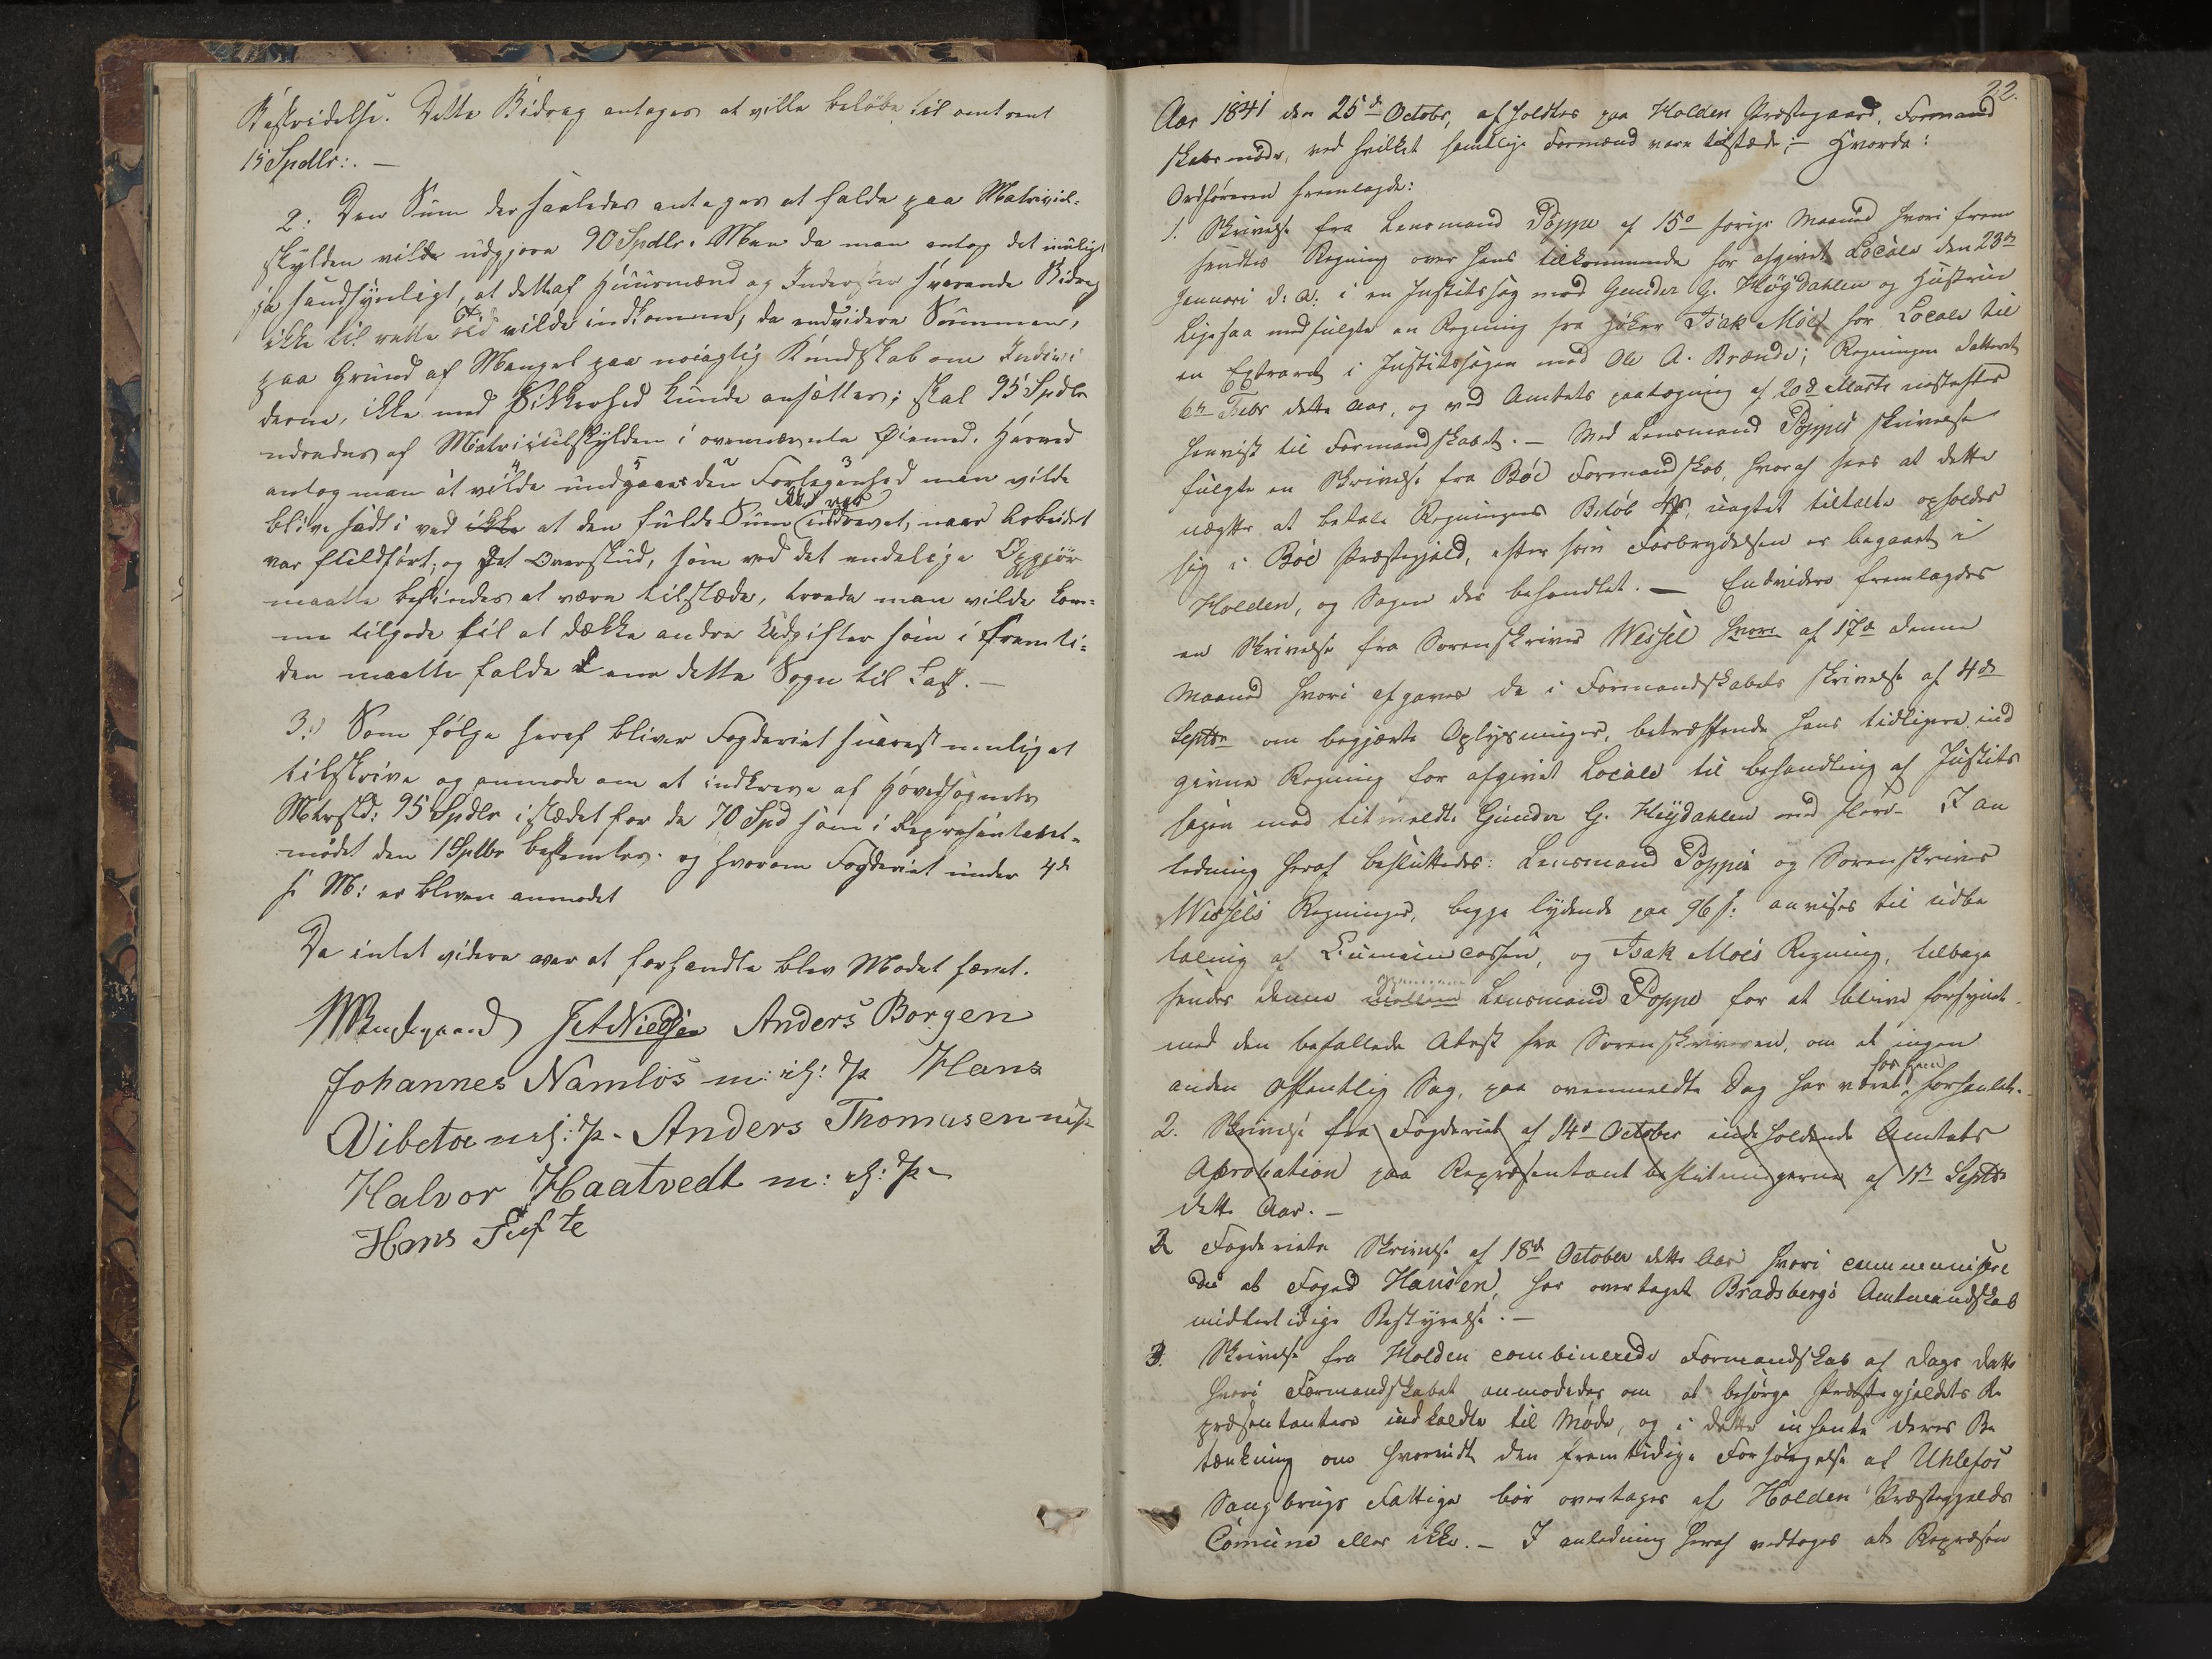 Bestridelse. Dette Bidrag antages at ville beløbe til omtrent
15 Spdlr:. —
2. Den Sum der saaledes antages at falde paa Matricul-
skylden vilde udgjøre 90 Spdlr. Men da man antog det muligt
ja sandsynligt, at dettaf Huusmænd og Inderster svarende Bidrag
ikke til rette Tid vilde indkomme, da endvidere Summen,
paa Grund af Mangel paa nøiagtig Kundskab om Indivi
derne, ikke med Sikkerhed kunde ansættes; skal 95 Spdlr
udredes af Matriculskylden i ovennævnte Øiemed. Herved
antog man at vilde undgaaes den Forlegenhed man vilde
blive sadt i ved ikke at den fulde Sum ikke var indkrævet, naar Arbeidet
var fuldført; og det Overskud, som ved det endelige Opgjør
maatte befindes at være tilstæde, troede man vilde kom-
me tilgode til at dække andre Udgifter som i Fremti-
den maatte falde dette Sogn til Last. —
3.) Som følge heraf bliver Fogderiet snarest muligt at
tilskrive og anmode om at indkræve af Hovedsognets
Mtrskld: 95 Spdlr istædet for de 70 Spd som i Repræsentant-
mødet den 1 Sptbr bestemtes. og hvorom Fogderiet under 4de
s: M: er bleven anmodet
Da intet videre var at forhandle blev Mødet hævet.
Anders Borgen
Johannes Namløs m: ihl: P: Hans
Vibetoe m ihl: P. Anders Thomasen m ihl P
Halvor Haatvedt m: ihl: P.
Hans Tufte
22.
Aar 1841 den 25de Octobr, afholdtes paa Holden Præstegaard, Formand
skabsmøde, ved hvilket samtlige Formænd vare tilstæde; — Hvorda:
Ordføreren fremlagde:
1. Skrivelse fra Lensmand Poppe af 15de forige Maaned hvori frem
sendtes Regning over hans tilkommende for afgivet Locale den 23de
Januari d: A: i en Justitssag mod Gunder G. Høgdahlen og Hustrue
Ligesaa medfulgte en Regning fra Høker Isak Moe for Locale til
en Extraret i Justitssagen mod Ole A. Brænde; Regningen datteret
6te Febr dette Aar, og ved Amtets paategning af 20de Marts næstefter
henvist til Formandskabet. — Med Lensmand Poppes skrivelse
fulgte en Skrivelse fra Böe Formandskab, hvoraf sees at dette
nægtte at betale Regningens Beløb, uagtet tiltalte opholder
sig i Böe Præstegjeld, efter som Forbrydelsen er begaaet i
Holden, og Sagen der behandlet. — Endvidere fremlagdes
en Skrivelse fra Sorenskriver Wessel af 17de denne
Maaned hvori afgaves de i Formandskabets skrivelse af 4de
Septbr om begjærte Oplysninger, betræffende hans tidligere ind
givne Regning for afgivet Locale til behandling af Justits
sagen mod titmeldte Gunder G. Høydahlen med flere. — I an
ledning heraf besluttedes: Lensmand Poppes og Sorenskriver
Wessels Regninger, begge lydende paa 96 s: anvises til udbe
taling af Comunecassen, og Isak Moes Regning, tilbage
sendes denne Lensmand Poppe for at blive forsynet
med den befallede Atest fra Sorenskriveren, om at ingen
anden offentlig Sag, paa ovenmeldte Dag har været for ham forhanlet.
2. Skrivelse fra Fogderiet af 14de October indeholdende Amtets
Aprobation paa Repræsentant beslutningerne af 1ste Septbr
dette Aar. —
2 Fogderiets Skrivelse af 18de October dette Aar hvori communisere
des at Foged Hansen, har overtaget Bradsbergs Amtmandskab
midlertidige Bestyrelse. —
3. Skrivelse fra Holden combinerede Formandskab af Dags Datto
hvori Formandskabet anmodedes om at besørge Præstegjeldets Re
præsentantere indkaldte til Møde, og i dette inhente deres Be
tænkning om hvorvidt den fremtidige Forsørgelse af Uhlefos
Saugbrugs Fattige bør overtages af Holden Præstegjelds
Comune eller ikke. — I anledning heraf vedtoges at Repræsen